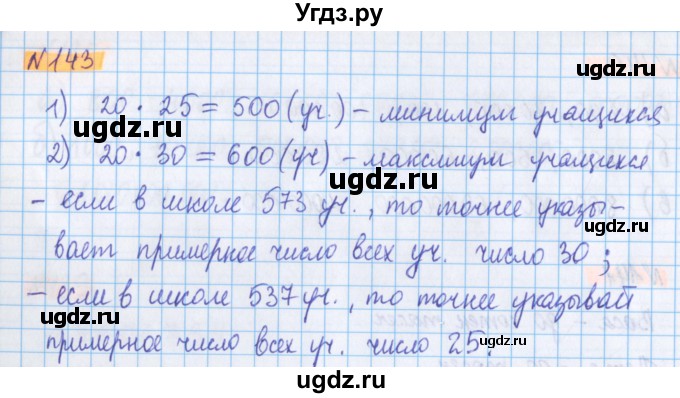 Угдз.ру
N143
ugdz.ru
1) 20 · 25 = 500 (уч.) – минимум учащихся
ugdz.ru ugdz.ru
2) 20 · 30 = 600 (уч) – максимум учащихся
– если в школе 573 уч., то точнее указы-
ugdz.ru ugdz.ru
вает примерное число всех уч. число 30;
– если в школе 537 уч., то точнее указывай
ugdz.ru ugdz.ru
примерное число всех уч. число 25.
ugdz.ru